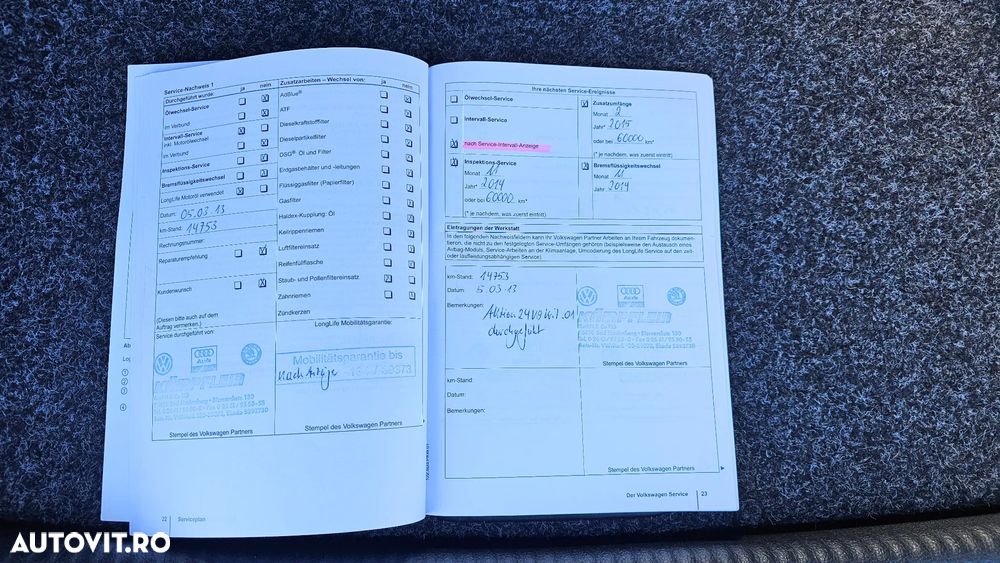 Service-Nachweis 1
ja
nein
Durchgeführt wurde:
Ölwechsel-Service
im Verbund
Intervall-Service
inkl. Motorölwechsel
im Verbund
Inspektions-Service
Bremsflüssigkeitswechsel
LongLife Motoröl verwendet
Datum: 05.03.13
km-Stand: 14753
Rechnungsnummer:
Reparaturempfehlung
Kundenwunsch
(Diesen bitte auch auf dem
Auftrag vermerken.)
Service durchgeführt von:
Audi
Stempel des Volkswagen Partners
Zusatzarbeiten – Wechsel von:
ja
nein
AdBlue®
ATF
Dieselkraftstofffilter
Dieselpartikelfilter
DSG® Öl und Filter
Erdgasbehälter und -leitungen
Flüssiggasfilter (Papierfilter)
Gasfilter
Haldex-Kupplung: Öl
Keilrippenriemen
Luftfiltereinsatz
Reifenfüllflasche
Staub- und Pollenfiltereinsatz
Zahnriemen
Zündkerzen
LongLife Mobilitätsgarantie:
Mobilitätsgarantie bis
nach Anzeige
Stempel des Volkswagen Partners
22
Serviceplan
Ihre nächsten Service-Ereignisse
Ölwechsel-Service
Intervall-Service
nach Service-Intervall-Anzeige
Inspektions-Service
Monat 11
Jahr* 2014
oder bei 60000 km*
(* je nachdem, was zuerst eintritt)
Zusatzumfänge
Monat 2
Jahr* 2015
oder bei 60000 km*
(* je nachdem, was zuerst eintritt)
Bremsflüssigkeitswechsel
Monat 11
Jahr 2014
Eintragungen der Werkstatt
In den folgenden Nachweisfeldern kann Ihr Volkswagen Partner Arbeiten an Ihrem Fahrzeug dokumen-
tieren, die nicht zu den festgelegten Service-Umfängen gehören (beispielsweise den Austausch eines
Airbag-Moduls, Service-Arbeiten an der Klimaanlage, Umcodierung des LongLife Service auf den zeit-
oder laufleistungsabhängigen Service).
km-Stand: 14753
Datum: 5.03.13
Bemerkungen:
Aktion
durchgeführt
Audi
Stempel des Volkswagen Partners
km-Stand:
Datum:
Bemerkungen:
Stempel des Volkswagen Partners
Der Volkswagen Service
23
AUTOVIT.RO